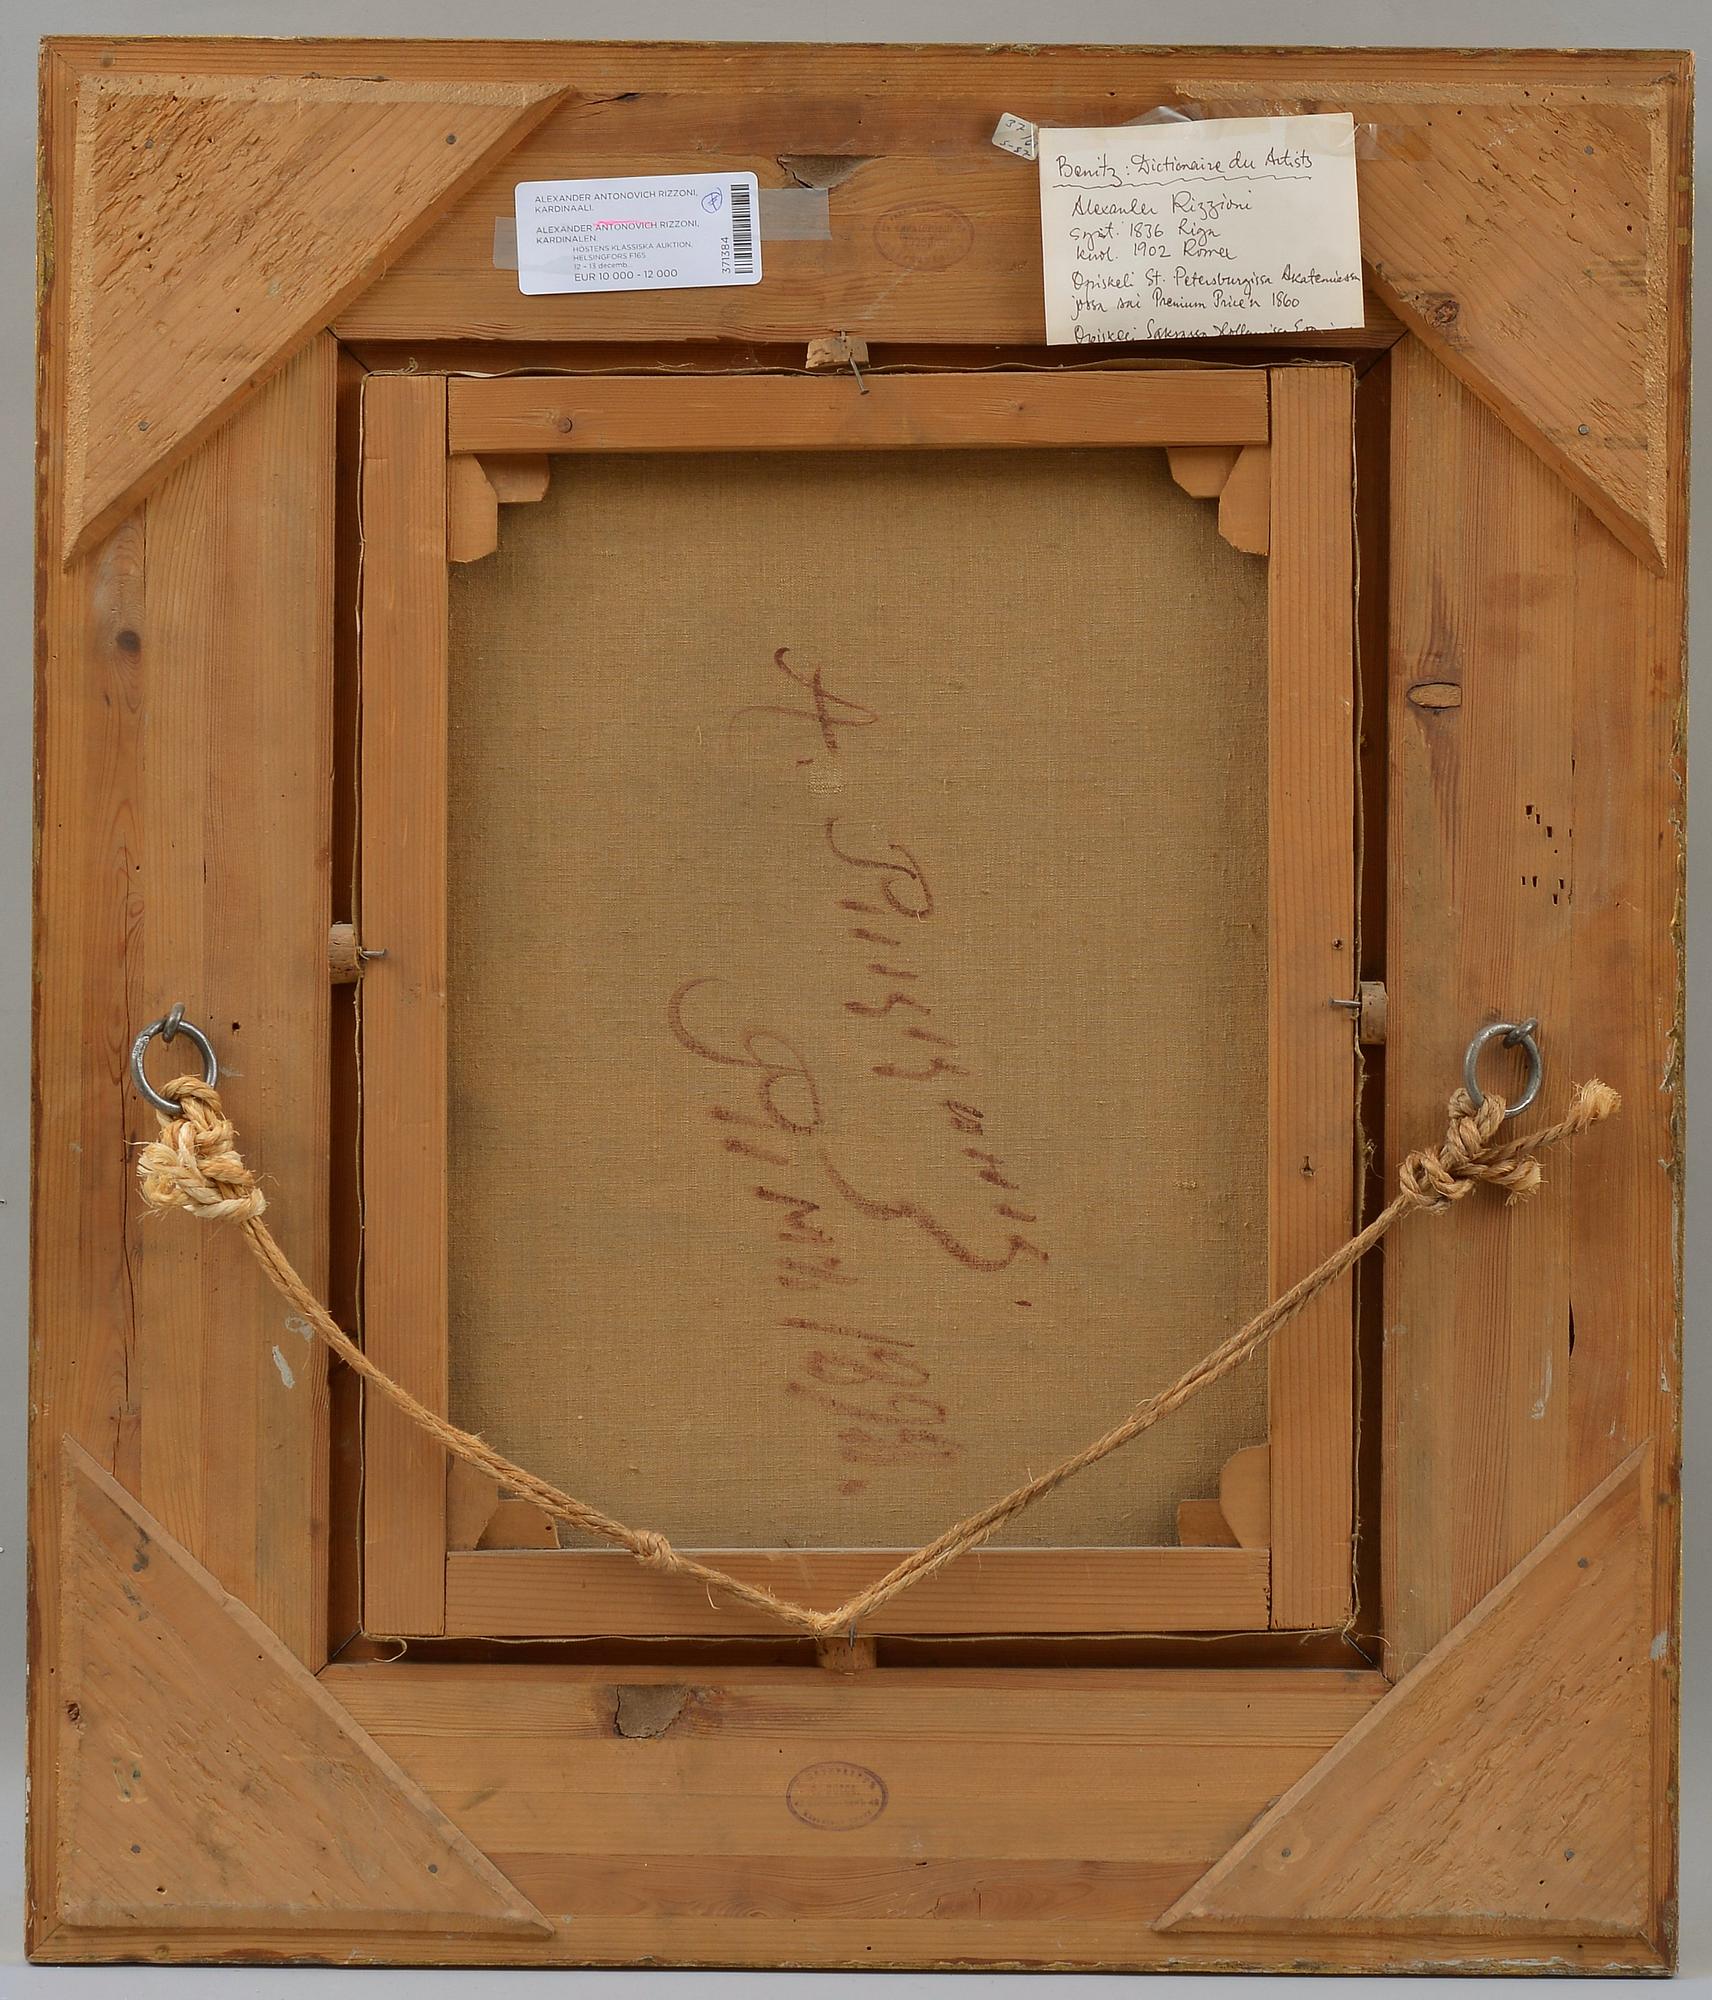 ALEXANDER ANTONOVICH RIZZONI,
KARDINAALI.
ALEXANDER ANTONOVICH RIZZONI,
KARDINALEN.
HÖSTENS KLASSISKA AUKTION,
HELSINGFORS F165
12 - 13 decemb...
EUR 10 000 - 12 000
371384
37
Benitz: Dictionaire du Artists
Alexander Rizzioni
synt. 1836 Riga
kuol. 1902 Romee
Opiskeli St. Petersburgissa Akatemiassa
jossa sai Premium Price'n 1860
Opiskeli Saksassa Hollannissa
А. Риццони
Римъ